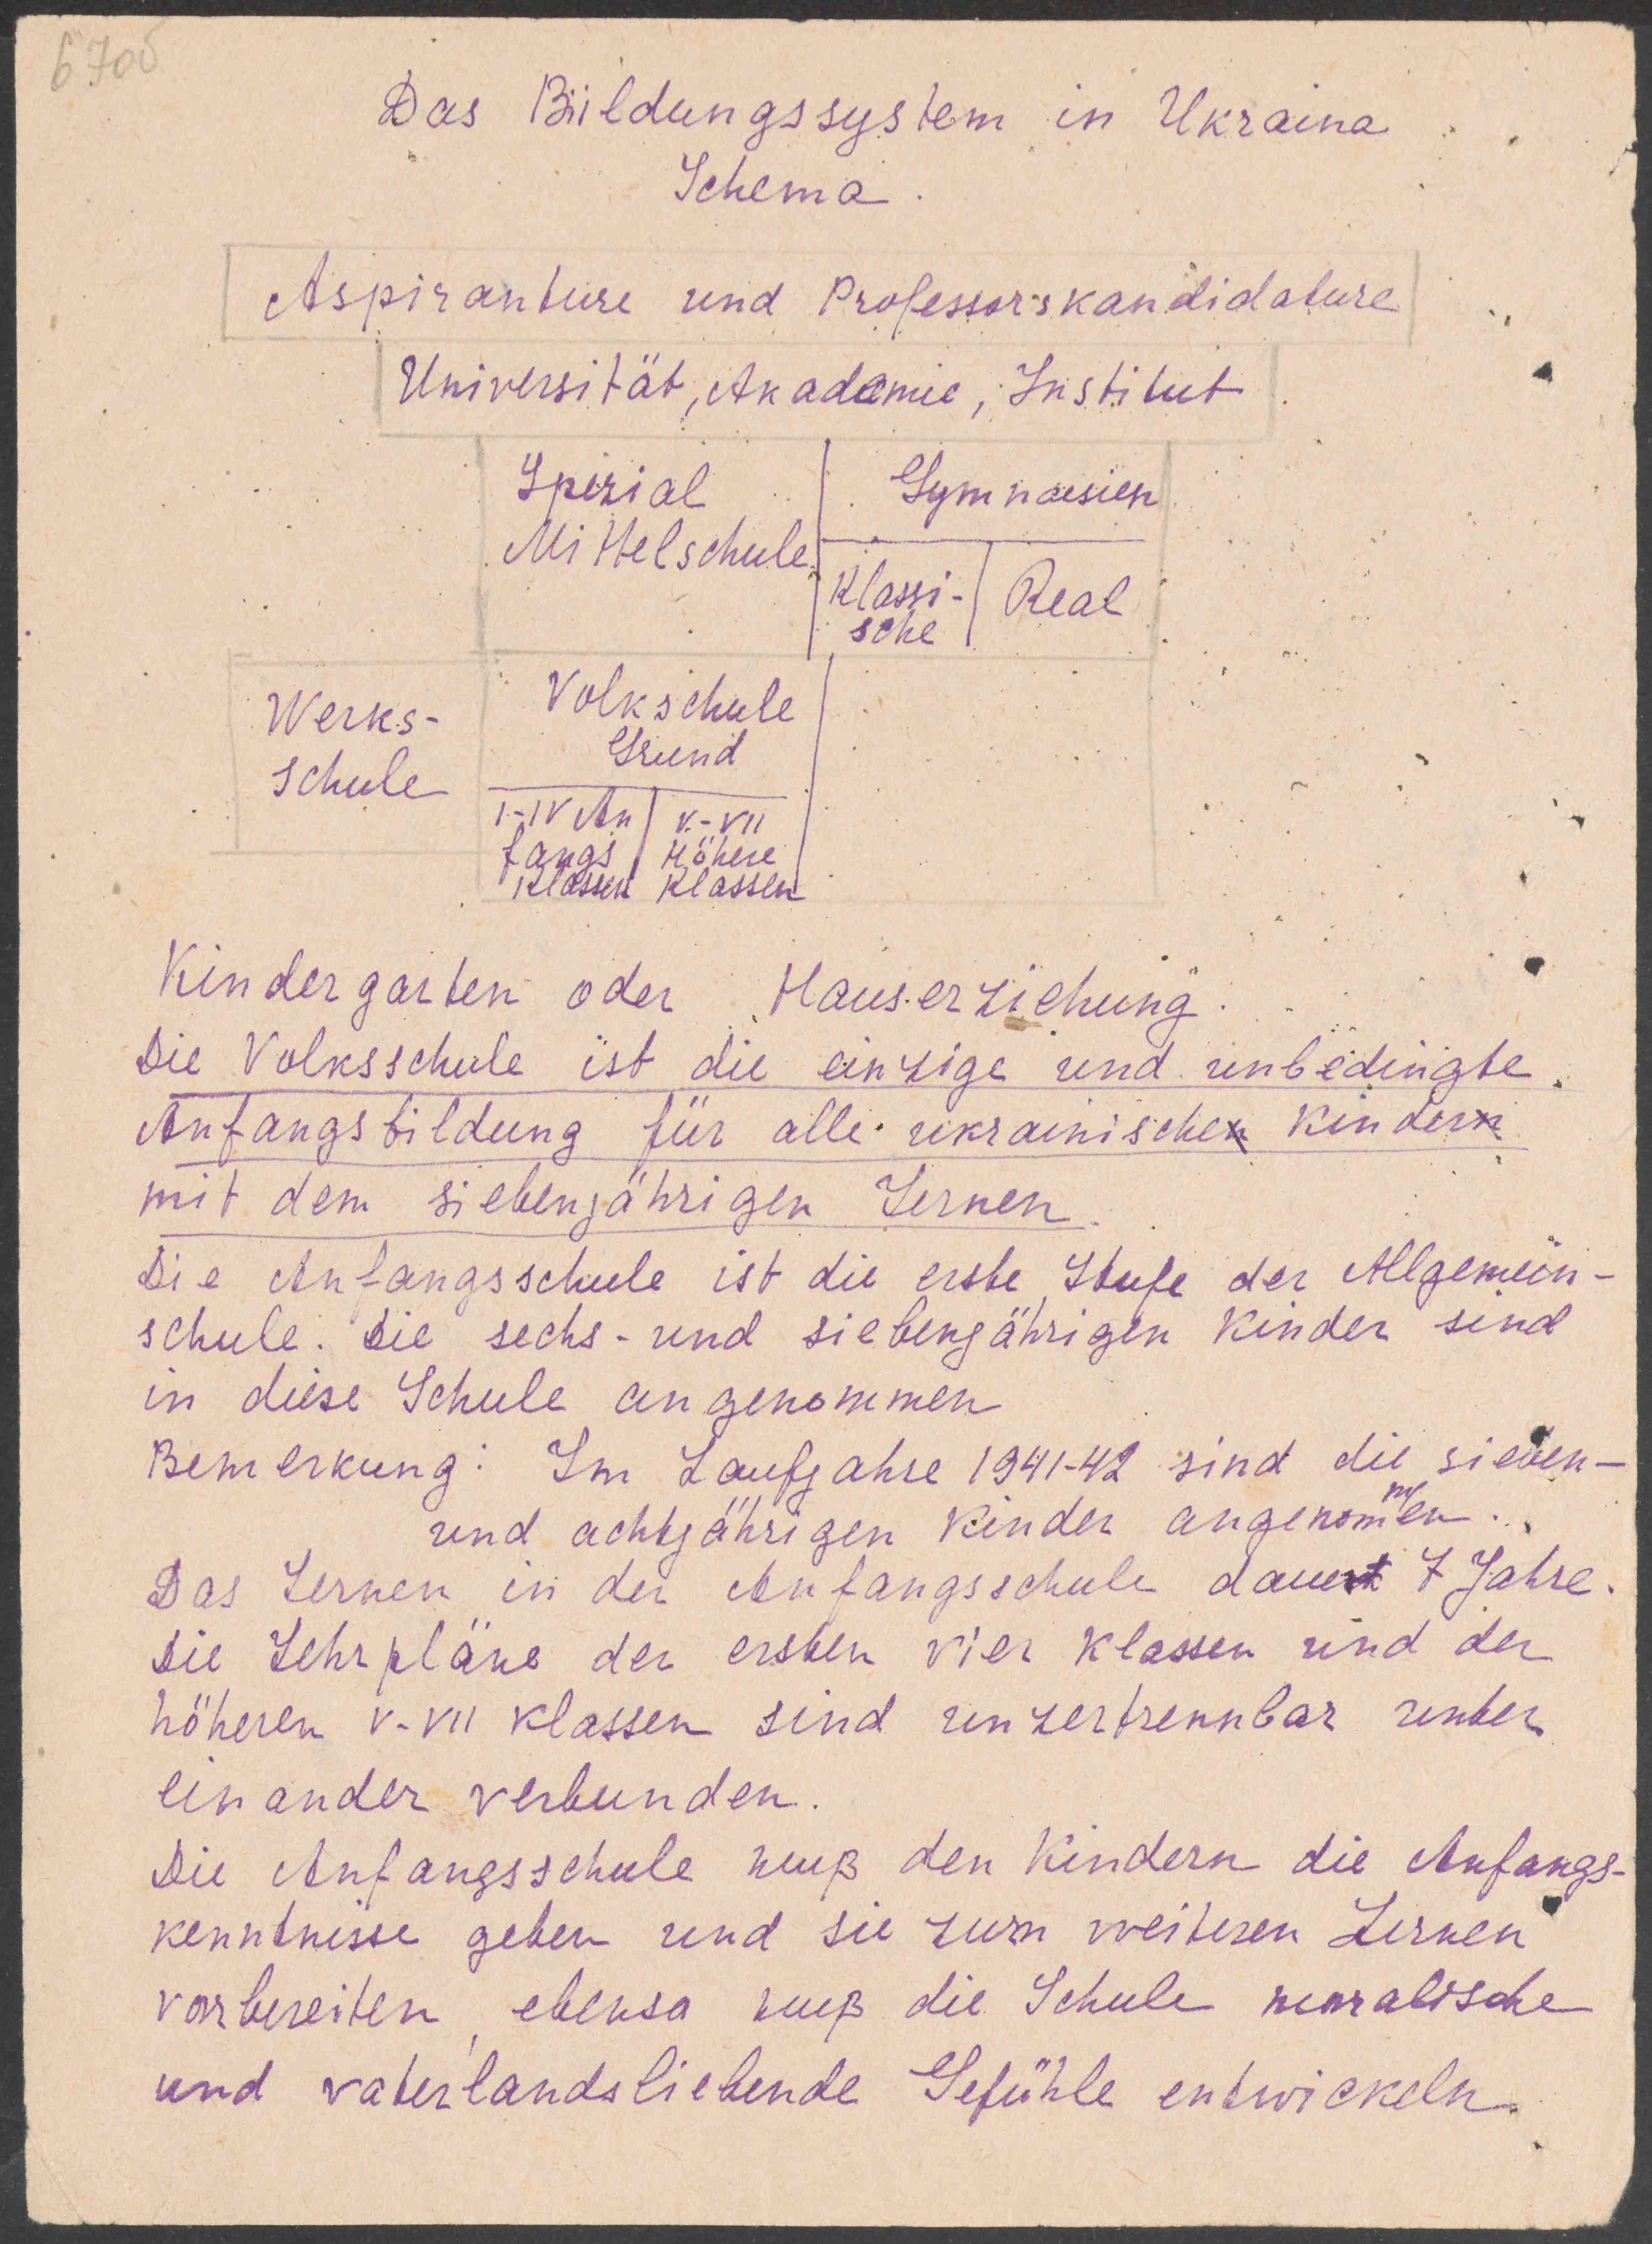 670б
Das Büldungssystem in Ukraina
Schema.
Aspiranture und Professorskandidature
Universität, Akademie, Institut
Spezial
Mittelschule
Gymnasien
Klassi-
sche
Real
Werks-
schule
Volkschule
Grund
I-IV An
fangs
Klassen
V-VII
Höhere
Klassen
Kindergarten oder Hauserziehung.
Die Volksschule ist die einzige und unbedingte
Anfangsbildung für alle ukrainische Kinder
mit dem siebenjährigen Lernen.
Die Anfangsschule ist die erste Stufe der Allgemein-
schule. Die sechs- und siebenjährigen Kinder sind
in diese Schule angenommen
Bemerkung: Im Laufjahre 1941-42 sind die sieben-
und achtjährigen Kinder angenommen.
Das Lernen in der Anfangsschule dauert 7 Jahre.
Die Lehrpläne der ersten vier Klassen und der
höheren V-VII Klassen sind unzertrennbar unter
einander verbunden.
Die Anfangsschule muß den Kindern die Anfangs-
kenntnisse geben und sie zum weiteren Lernen
vorbereiten, ebenso muß die Schule moralische
und vaterlandsliebende Gefühle entwickeln.